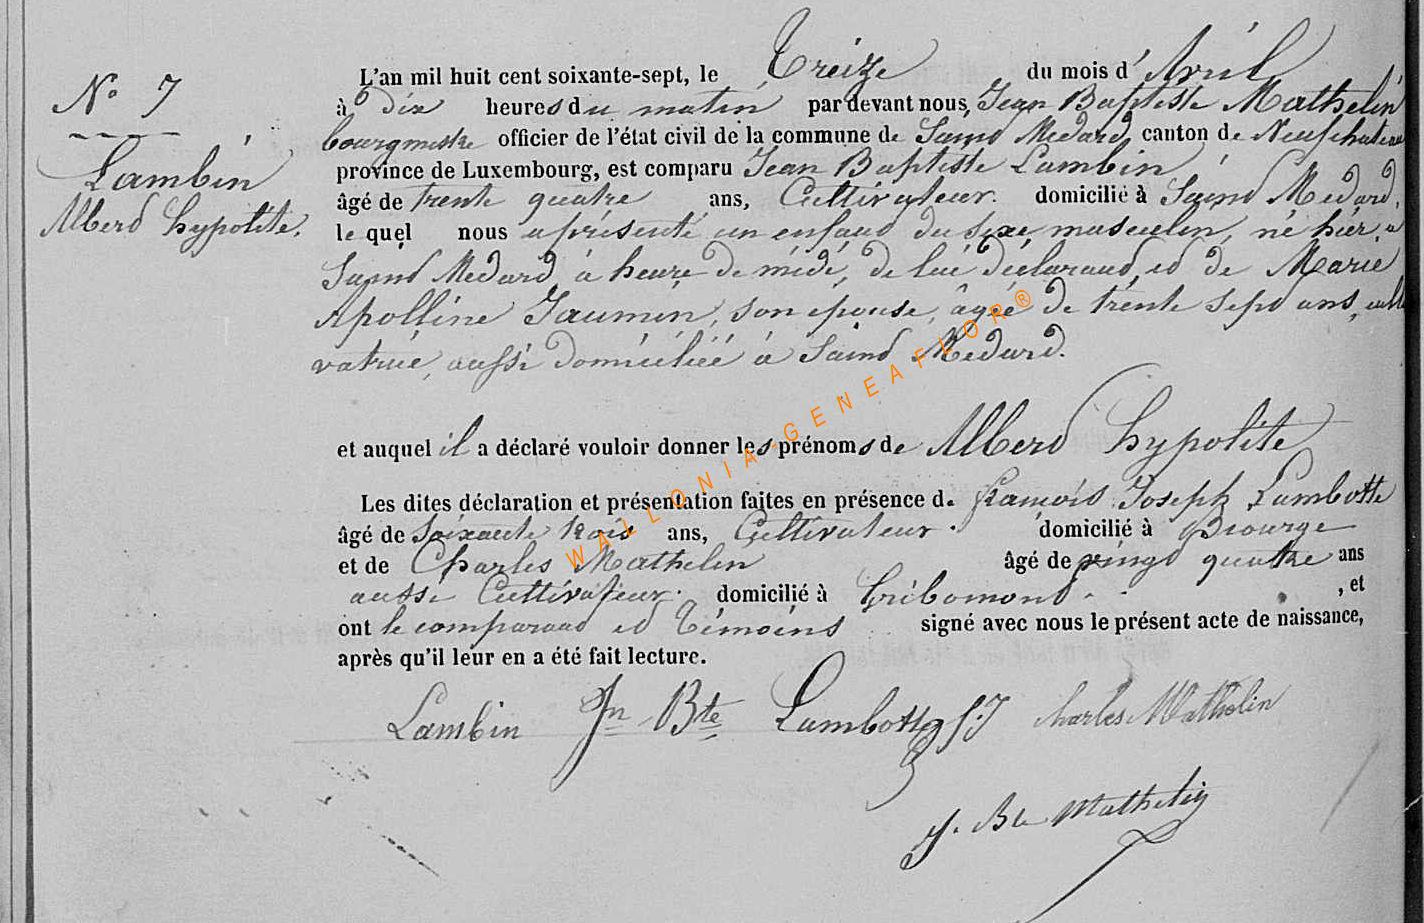 No 7
Lambin
Alberd hypolite.
L'an mil huit cent soixante-sept, le Treize du mois d'Avril
à dix heures du matin par devant nous, Jean Baptiste Mathelin
bourgmestre officier de l'état civil de la commune de Saind Medard, canton de Neufchateau
province de Luxembourg, est comparu Jean Baptiste Lambin
âgé de trente quatre ans, Cultivateur. domicilié à Saind Medard,
lequel nous a présenté un enfaud du sexe masculin, né hier, a
Saind Medard, à heure de midi, de lui déclaraud, ed de Marie
Apolline Jaumin, son épouse, âgée de trente sepd ans, culti
vatrice, aussi domiciliée à Saind Medard.
et auquel il a déclaré vouloir donner les prénoms de Alberd hypolite
Les dites déclaration et présentation faites en présence de françois Joseph Lambotte
âgé de Soixante trois ans, Cultivateur. domicilié à Biourge
et de Charles Mathelin âgé de vingd quatre ans
aussi Cultivateur. domicilié à Gribomond. , et
ont le comparaud ed Témoins signé avec nous le présent acte de naissance,
après qu'il leur en a été fait lecture.
Lambin Jn Bte Lambotte f. J Charles Mathelin
J. Bte Mathelin
WALLONIA-GENEAFLOR®